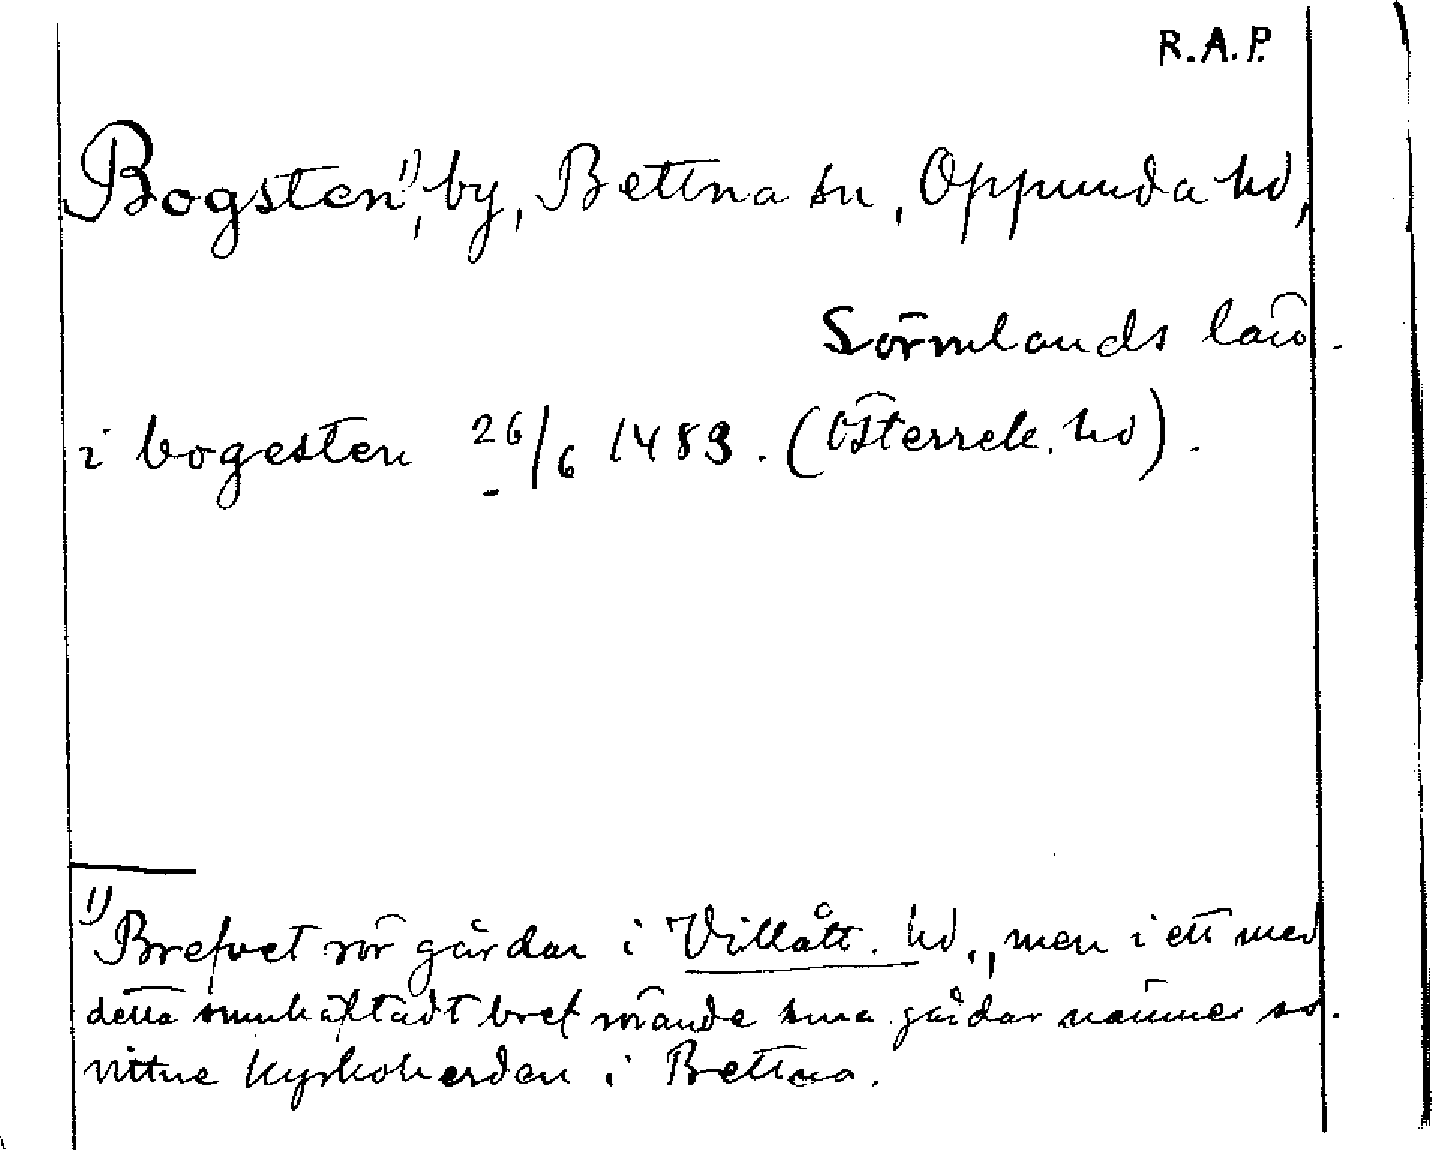 R.A.P.
Bogsten¹⁾, by, Bettna sn, Oppunda hd,
Sörmlands län.
i bogesten 26/6 1489. (Österrek. hd).
1) Brefvet rör gårdar i Villått. hd., men i ett med
detta smnhäftadt bref rörande sma gårdar nämnes ss.
vittne kyrkoherden i Bettna.